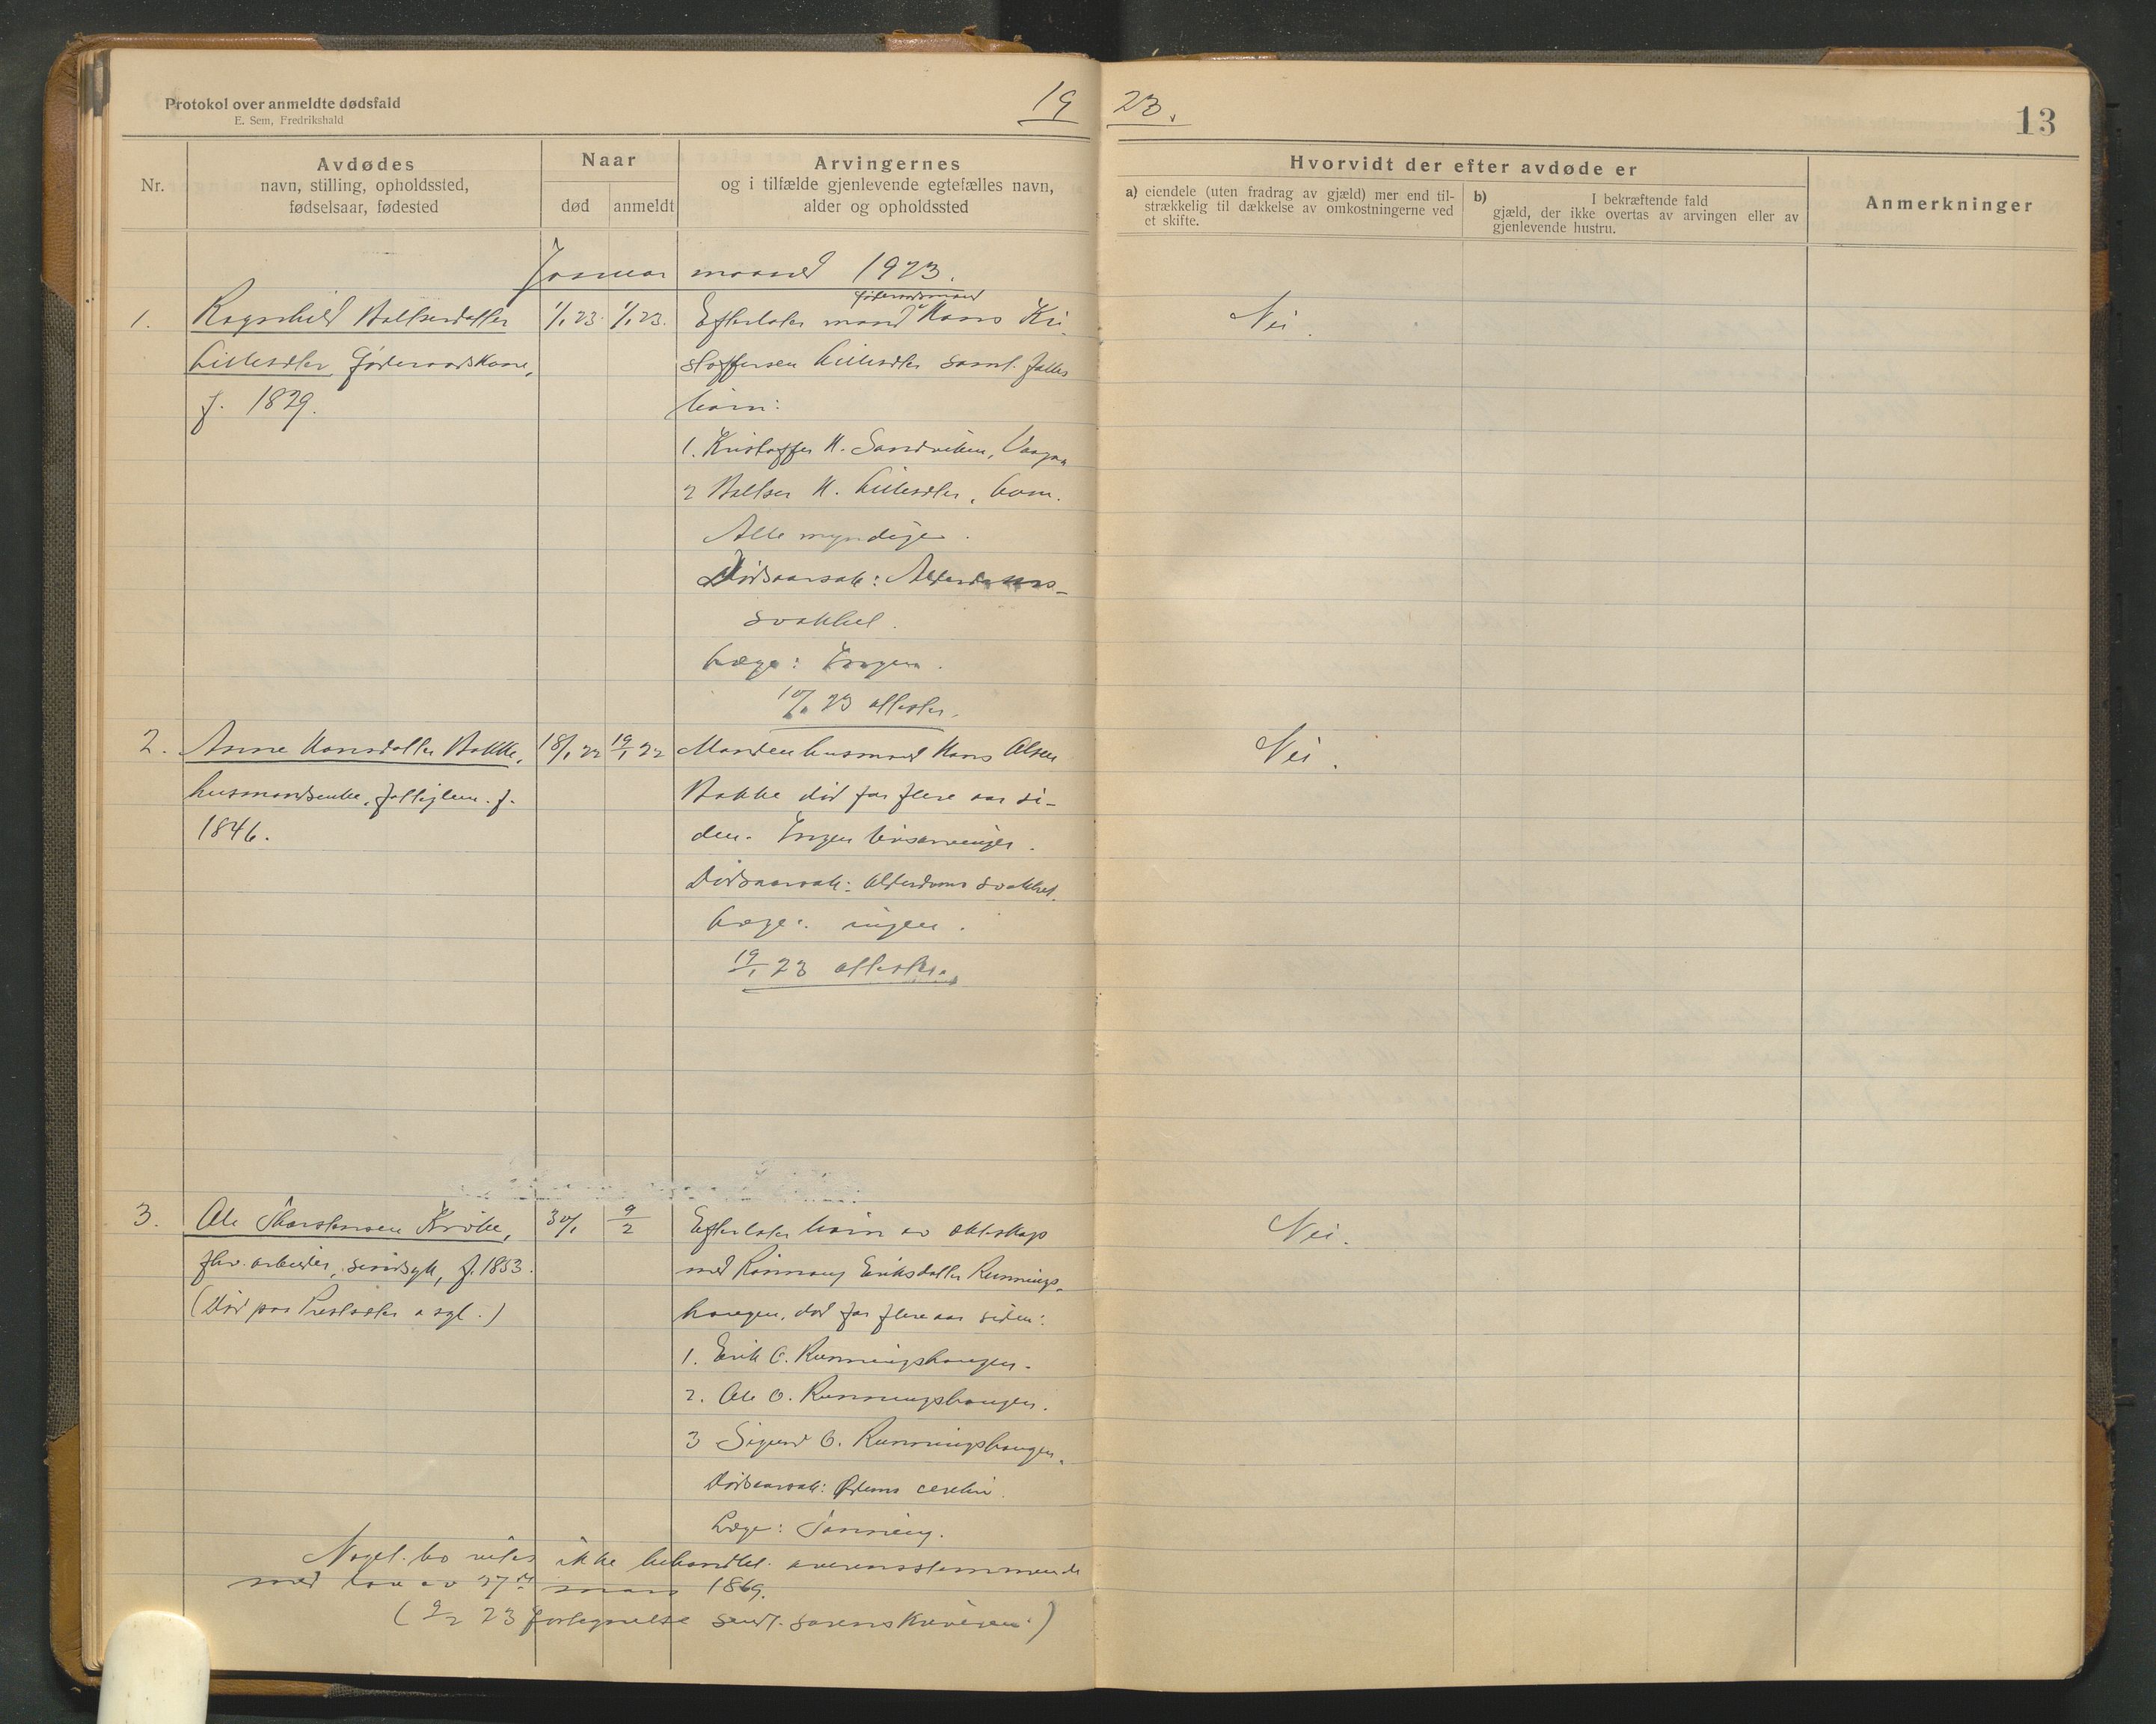 Protokol over anmeldte dødsfald
E. Sem, Fredrikshald
19 23.
13
Nr.
Avdødes
navn, stilling, opholdssted,
fødselsaar, fødested
Naar
død
anmeldt
Arvingernes
og i tilfælde gjenlevende egtefælles navn,
alder og opholdssted
Hvorvidt der efter avdøde er
a) eiendele (uten fradrag av gjæld) mer end til-
strækkelig til dækkelse av omkostningerne ved
et skifte.
b) I bekræftende fald
gjæld, der ikke overtas av arvingen eller av
gjenlevende hustru.
Anmerkninger
Januar maaned 1923.
føderaadsmand
1. Ragnhild Balserdatter 1/1 23. 1/1 23. Efterlater mand Hans Kri- Nei.
føderaadskone, stoffersen samt fælles
f. 1829. barn:
1. Kristoffer H. Sandviken, Vaaga
2 Balser H.
Alle myndige.
Dødsaarsak: Alderdoms-
svakhet.
Læge: Ingen.
10/1 23 attester.
2. Anne Hansdatter Bakke, 18/1 22 19/1 22 Manden husmand Hans Olsen Nei.
husmandsenke, fattiglem. f. Bakke død for flere aar si-
1846. den. Ingen livsarvinger.
Dødsaarsak: Alderdoms svakhet.
Læge: ingen.
19/1 23 attester.
3. Ole Thorstensen Kroke, 30/1 9/2 Efterlater barn av ekteskap Nei.
fhv. arbeider, sindsyk, f. 1853. med Rønnaug Eriksdatter Runnings-
(Død paa Prestseter asyl.) haugen, død for flere aar siden:
1. Erik O. Runningshaugen.
2. Ole O. Runningshaugen.
3 Sigurd O. Runningshaugen.
Dødsaarsak: Ødema cerebri.
Læge:
Noget bo vites ikke behandlet overensstemmende
med lov av 27de mars 1869.
(9/2 23 fortegnelse sendt sorenskriveren.)